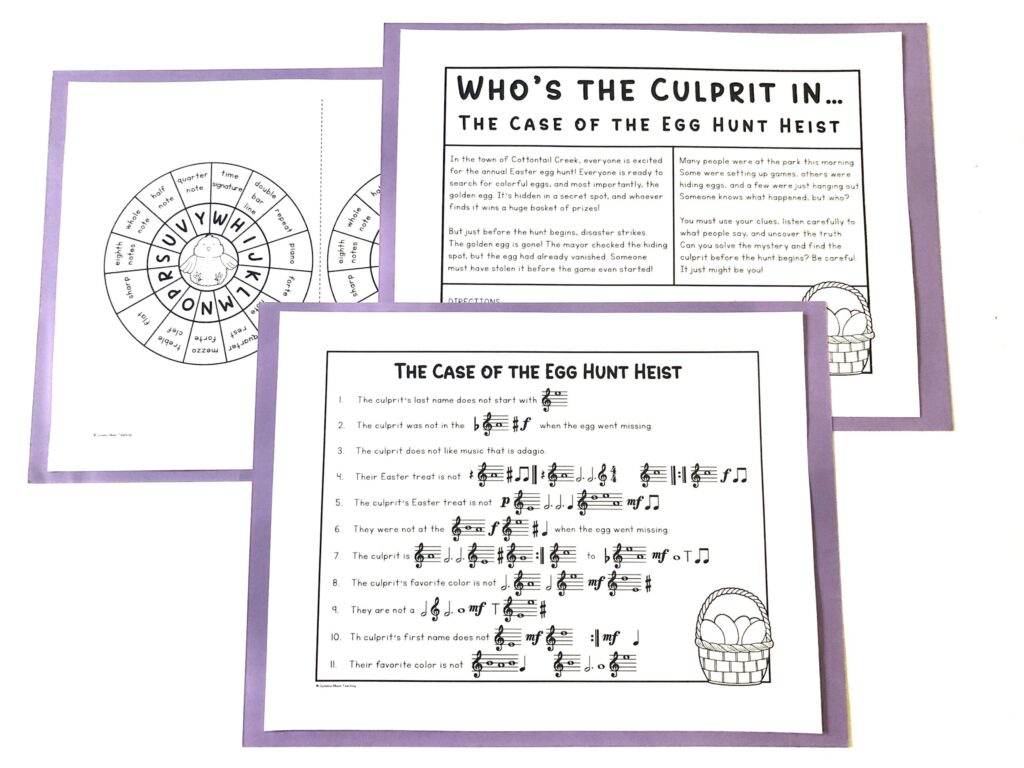 WHO'S THE CULPRIT IN...
THE CASE OF THE EGG HUNT HEIST
In the town of Cottontail Creek, everyone is excited
for the annual Easter egg hunt! Everyone is ready to
search for colorful eggs, and most importantly, the
golden egg. It's hidden in a secret spot, and whoever
finds it wins a huge basket of prizes!
But just before the hunt begins, disaster strikes.
The golden egg is gone! The mayor checked the hiding
spot, but the egg had already vanished. Someone
must have stolen it before the game even started!
Many people were at the park this morning
Some were setting up games, others were
hiding eggs, and a few were just hanging out
Someone knows what happened, but who?
You must use your clues, listen carefully to
what people say, and uncover the truth.
Can you solve the mystery and find the
culprit before the hunt begins? Be careful.
It just might be you!
DIRECTIONS
time signature
double bar line
repeat
piano
forte
quarter rest
mezzo forte
treble clef
flat
sharp
eighth notes
whole note
half note
quarter note
W H I J K L M N O P R S U V Y
whole note
eighth notes
sharp
THE CASE OF THE EGG HUNT HEIST
1. The culprit's last name does not start with
2. The culprit was not in the f when the egg went missing.
3. The culprit does not like music that is adagio.
4. Their Easter treat is not f
5. The culprit's Easter treat is not p mf
6. They were not at the f when the egg went missing.
7. The culprit is to mf T
8. The culprit's favorite color is not mf
9. They are not a mf T
10. Th culprit's first name does not mf mf
11. Their favorite color is not